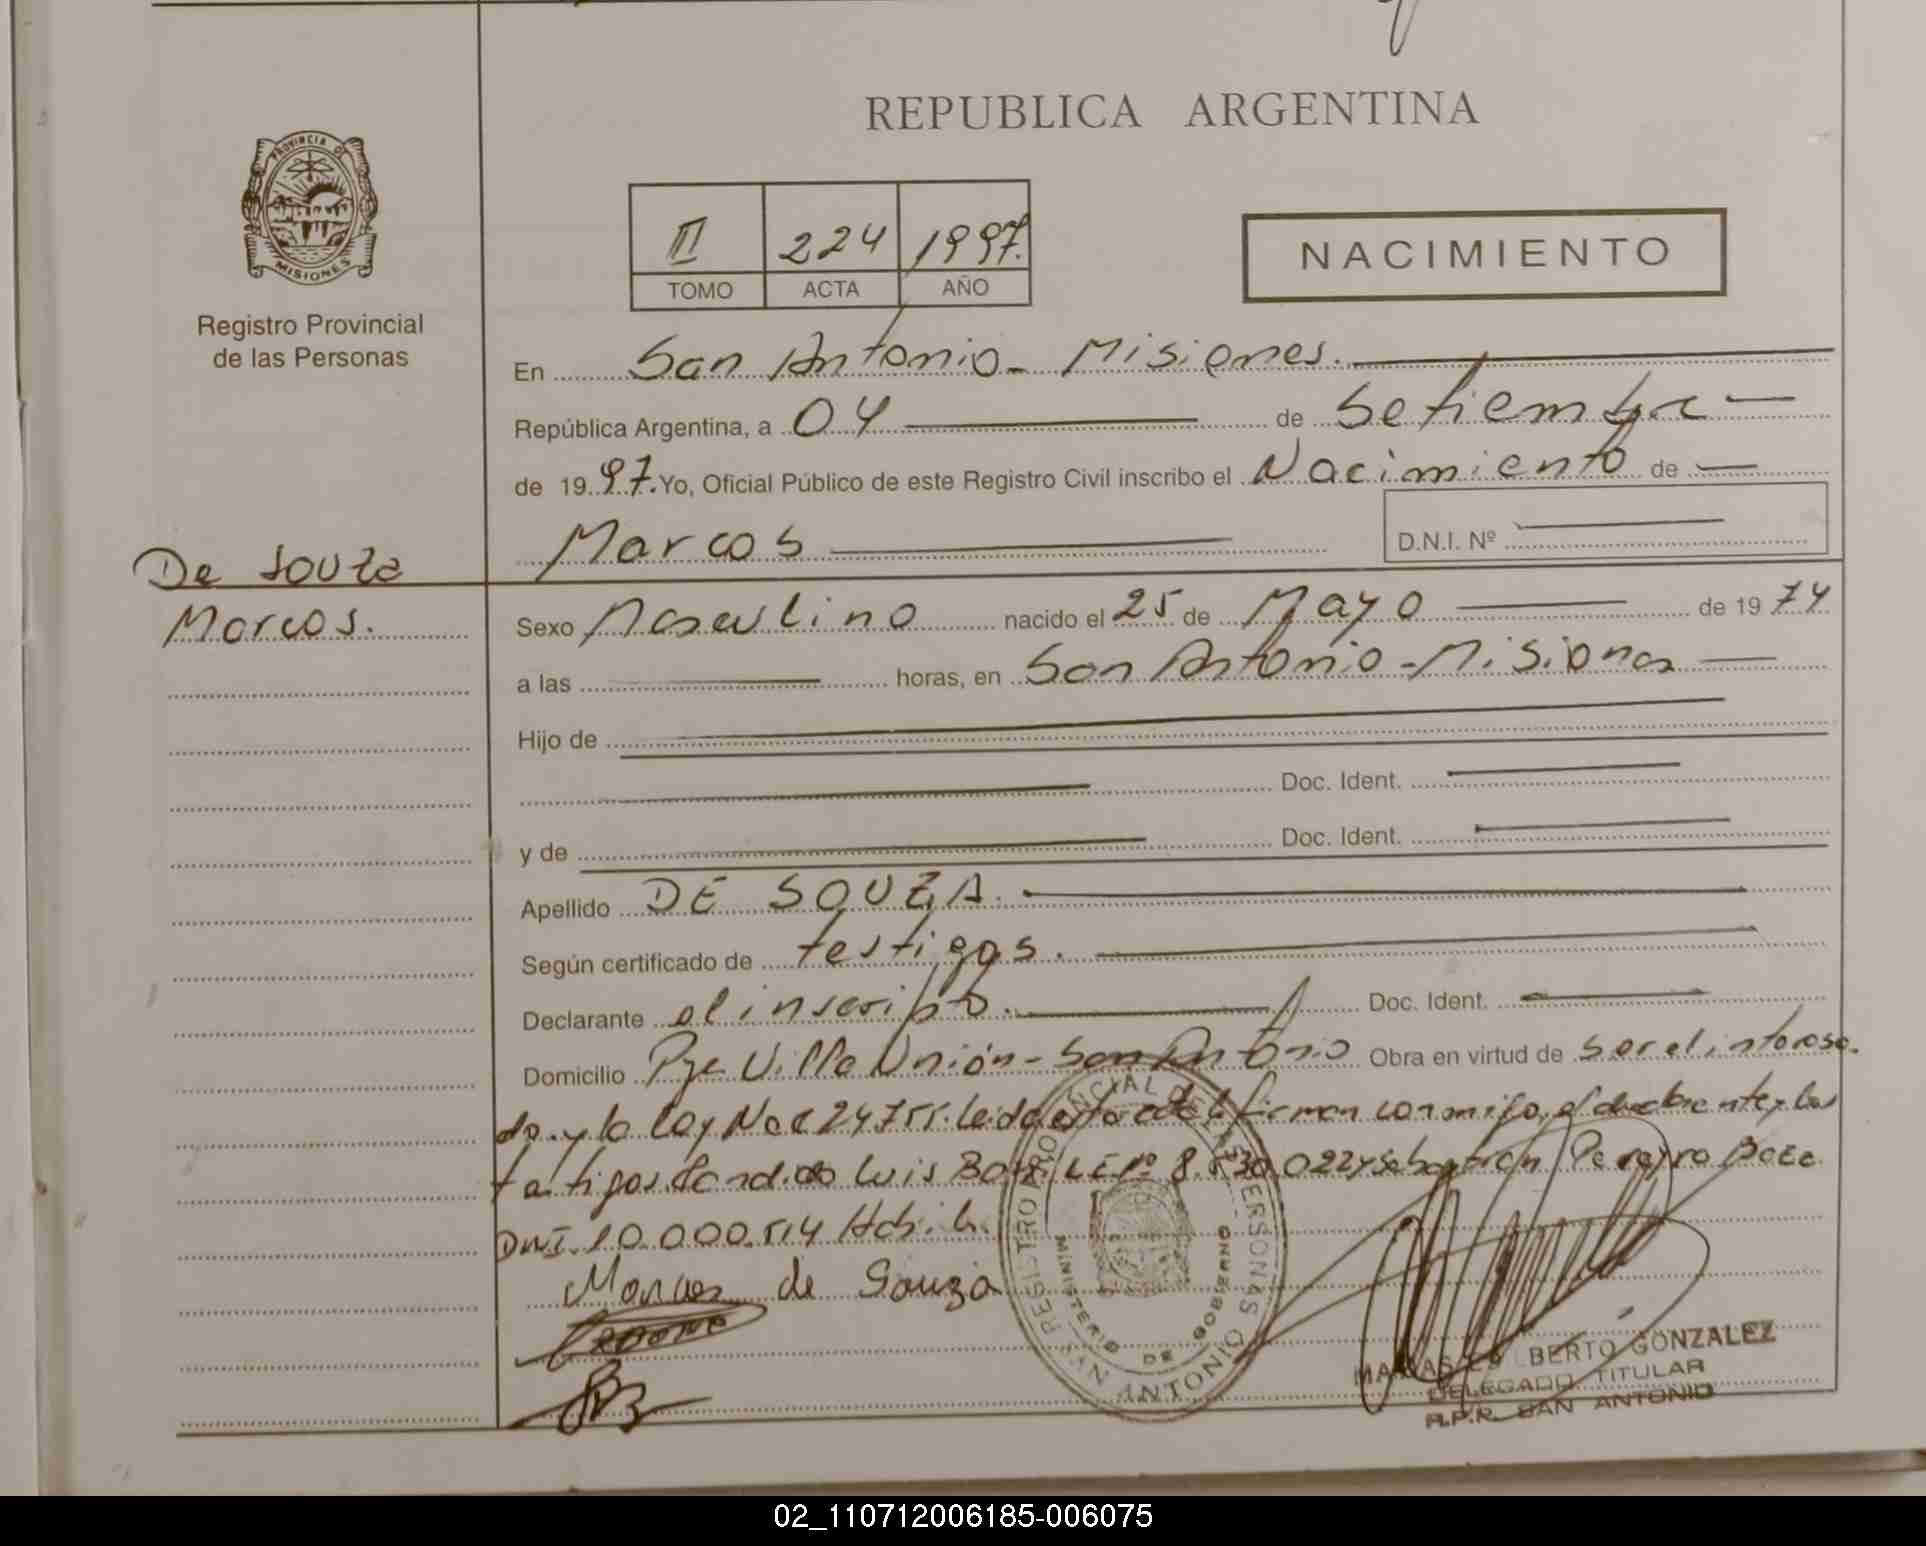 REPUBLICA ARGENTINA
PROVINCIA DE
MISIONES
Registro Provincial
de las Personas
II 224 1997.
TOMO ACTA AÑO
NACIMIENTO
En San Antonio - Misiones.
República Argentina, a 04 de Setiembre
de 1997. Yo, Oficial Público de este Registro Civil inscribo el Nacimiento de
Marcos
D.N.I. Nº
De Souza
Marcos.
Sexo Masculino nacido el 25 de Mayo de 1974
a las horas, en San Antonio - Misiones
Hijo de
Doc. Ident.
y de Doc. Ident.
Apellido DE SOUZA.
Según certificado de testigos.
Declarante el inscripto. Doc. Ident.
Domicilio Pje Villa Unión - San Antonio Obra en virtud de ser el interesa-
do. y la Ley Nac 24755. Leida esta acta la firman conmigo, el declarante y los
testigos Candido Luis LE Nº 8.530.022 y Sebastian Pereyra
DNI. 10.000.514
Marcos de Souza
REGISTRO PROVINCIAL DE LAS PERSONAS
MINISTERIO DE GOBIERNO
SAN ANTONIO
BERTO GONZALEZ
DELEGADO TITULAR
R.P.R. SAN ANTONIO
02_110712006185-006075